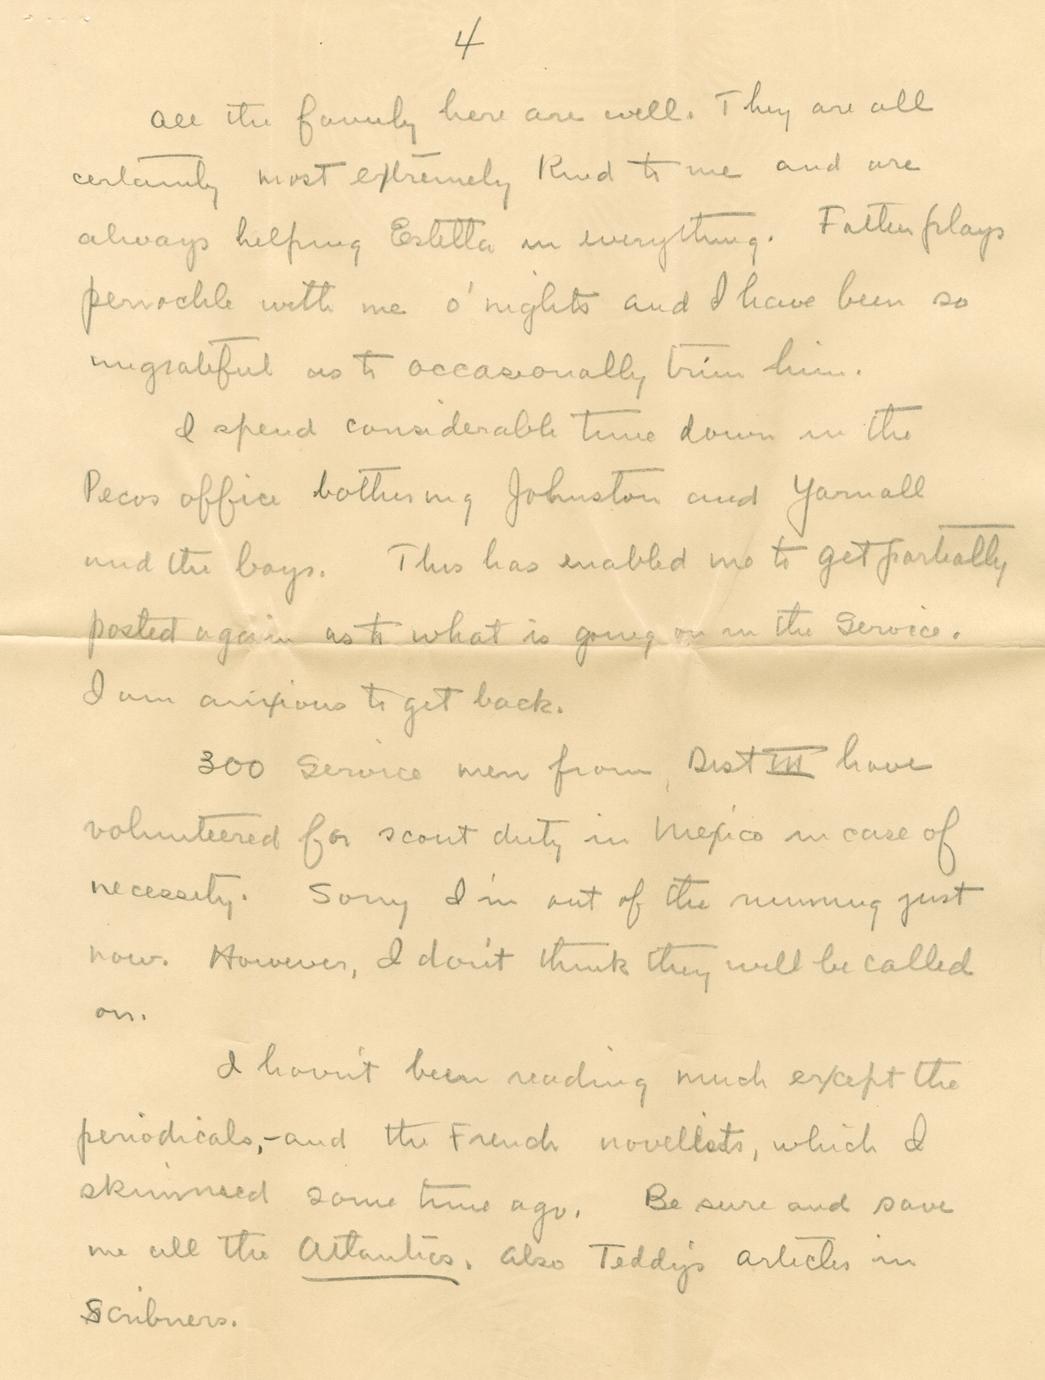 4
All the family here are well. They are all
certainly most extremely kind to me and are
always helping Estella in everything. Father plays
penochle with me o' nights and I have been so
ungrateful as to occasionally trim him.
I spend considerable time down in the
Pecos office bothering Johnston and Yarnall
and the boys. This has enabled me to get partially
posted again as to what is going on in the Service.
I am anxious to get back.
300 Service men from Dist III have
volunteered for scout duty in Mexico in case of
necessity. Sorry I'm out of the running just
now. However, I don't think they will be called
on.
I havn't been reading much except the
periodicals,-and the French novelists, which I
skimmed some time ago. Be sure and save
me all the Atlantics. Also Teddy's articles in
Scribners.